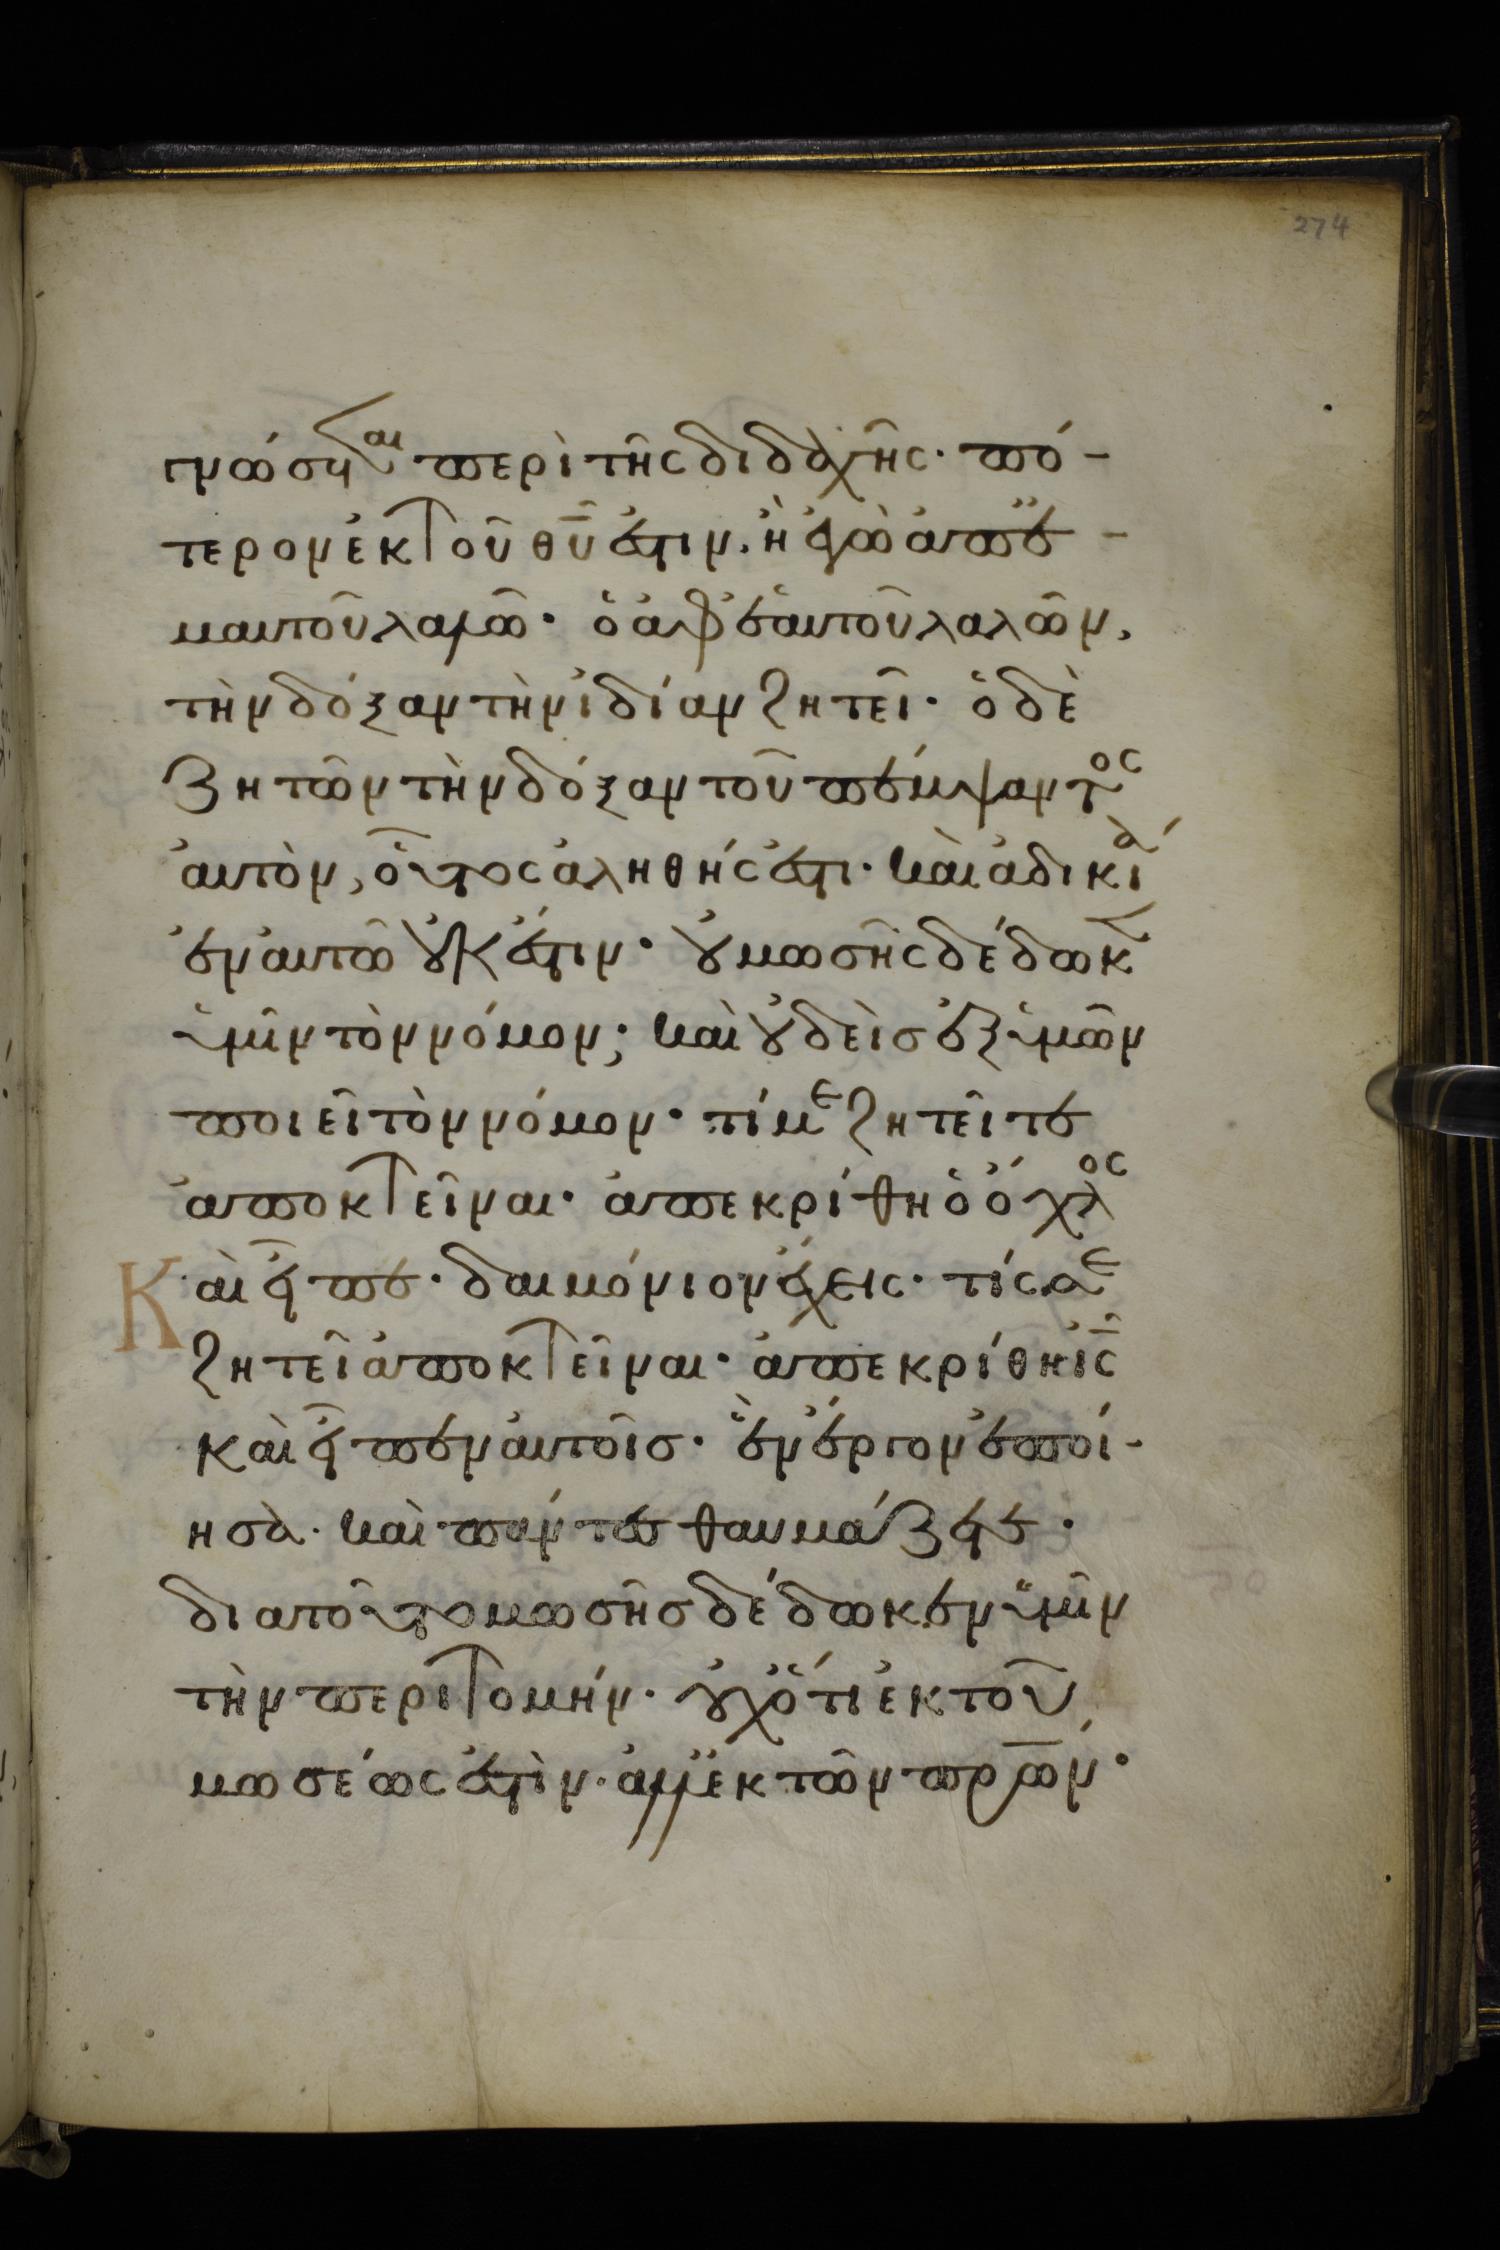 274
γνώσεται περὶ τῆς διδαχῆς· πό-
τερον ἐκ τοῦ θῡ ἐστιν. ἢ ἐγὼ ἀπ' ἐ-
μαυτοῦ λαλῶ· ὁ ἀφ' ἑαυτοῦ λαλῶν,
τὴν δόξαν τὴν ἰδίαν ζητεῖ· ὁ δὲ
ζητῶν τὴν δόξαν τοῦ πέμψαντος
αὐτὸν, οὗτος ἀληθής ἐστι· καὶ ἀδικία
ἐν αὐτῶ οὐκ ἔστιν· οὐ μωσῆς δέδωκεν
ὑμῖν τὸν νόμον; καὶ οὐδεὶς ἐξ ὑμῶν
ποιεῖ τὸν νόμον· τί με ζητεῖτε
ἀποκτεῖναι· ἀπεκρίθη ὁ ὄχλος
Καὶ εἶπε· δαιμόνιον ἔχεις· τίς σε
ζητεῖ ἀποκτεῖναι· ἀπεκρίθη ἰ̄ς̄
καὶ εἶπεν αὐτοῖς· ἓν ἔργον ἐποί-
ησα· καὶ πάντες θαυμάζετε·
διατοῦτο μωσῆς δέδωκεν ὑμῖν
τὴν περιτομήν· οὐχ ὅτι ἐκ τοῦ
μωσέως ἐστὶν· ἀλλ' ἐκ τῶν πρ̄ων·